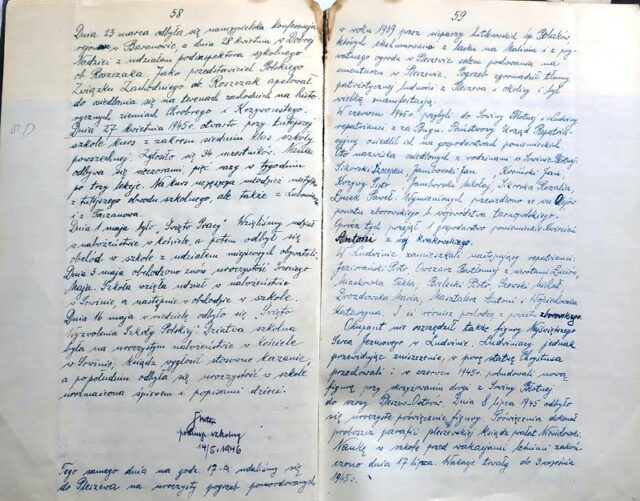 58
Dnia 23 marca odbyła się nauczycielska konferencja
rejonowa w Baranowie, a dnia 28 kwietnia w Dobrej
Nadziei z udziałem podinspektora szkolnego
ob. Roszczaka. Jako przedstawiciel Polskiego
Związku Zachodniego ob. Roszczak apelował
do osiedlania się na terenach zachodnich na histo-
rycznych ziemiach Chrobrego i Krzywoustego.
Dnia 27 kwietnia 1945 r. otwarto przy tutejszej
szkole kurs z zakresu siedmiu klas szkoły
powszechnej. Zgłosiło się 34 uczestników. Nauka
odbywa się wieczorami, pięć razy w tygodniu
po trzy lekcje. Na kurs uczęszcza młodzież nie tylko
z tutejszego obwodu szkolnego, ale także z Ludwiny
i z
Dnia 1 maja było "Święto Pracy". Wzięliśmy udział
w nabożeństwie w kościele, a potem odbył się
obchód w szkole z udziałem miejscowych obywateli.
Dnia 3 maja obchodzono znów uroczystość Trzeciego
Maja. Szkoła wzięła udział w nabożeństwie
w Sowinie, a następnie w obchodzie w szkole.
Dnia 16 maja w niedzielę odbyło się "Święto
Wyzwolenia Szkoły Polskiej". Dziatwa szkolna
była na uroczystym nabożeństwie w kościele
w Sowinie. Ksiądz wygłosił stosowne kazanie,
a popołudniu odbyła się uroczystość w szkole
urozmaicona śpiewem i popisami dzieci.
podinsp. szkolny
14/5. 1946
Tego samego dnia na godz. 17-tą udaliśmy się
do Pleszewa na uroczysty pogrzeb pomordowanych
59
w roku 1939 przez siepaczy hitlerowskich śp. Polaków
których ekshumowano z lasku na Maliniu i z pry-
watnego ogrodu w Pleszewie celem pochowania na
cmentarzu w Pleszewie. Pogrzeb zgromadził tłumy
patriotycznej ludności z Pleszewa i okolicy i był
wielką manifestacją.
W czerwcu 1945 r. przybyli do Sowiny Błotnej i Ludwiny
repatrianci z za Bugu. Państwowy Urząd Repatria-
cyjny osiedlił ich na gospodarstwach poniemieckich.
Oto nazwiska osiedlonych z rodzinami w Sowinie Błotnej:
Sikorski Jamborski Jan, Kominski Jan,
Krzywy Piotr, Jamborski Mikołaj, Sikorska Rozalia,
Paweł. Wymienionych przewieziono ze wsi
powiatu zborowskiego, województwa tarnopolskiego.
Oprócz tych przejął 1 gospodarstwo poniemieckie
Antoni z woj. krakowskiego.
W Ludwinie zamieszkali następujący repatrianci:
Jeziorowski Piotr, Owczarz Bartłomiej z
Miskowska Tekla, Bielecki Piotr, Michał,
Drozdowska Maria, Antoni i Wojciechowska
Katarzyna. I ci również pochodzą z powiatu zborowskiego.
Okupant nie oszczędził także figury Najświętszego
Serca Jezusowego w Ludwinie. Ludwiniacy jednak
przewidując zniszczenie, w porę statuę Chrystusa
przechowali i w czerwcu 1945 r. pobudowali nową
figurę przy skrzyżowaniu drogi z Sowiny Błotnej
do szosy Pleszew-Ostrów. Dnia 8 lipca 1945 odbyło
się uroczyste poświęcenie figury. Poświęcenia dokonał
proboszcz parafii pleszewskiej ksiądz prałat Niesiołowski.
Naukę w szkole przed wakacjami letnimi zakoń-
czono dnia 17 lipca. Wakacje trwały do 3 września
1945 r.